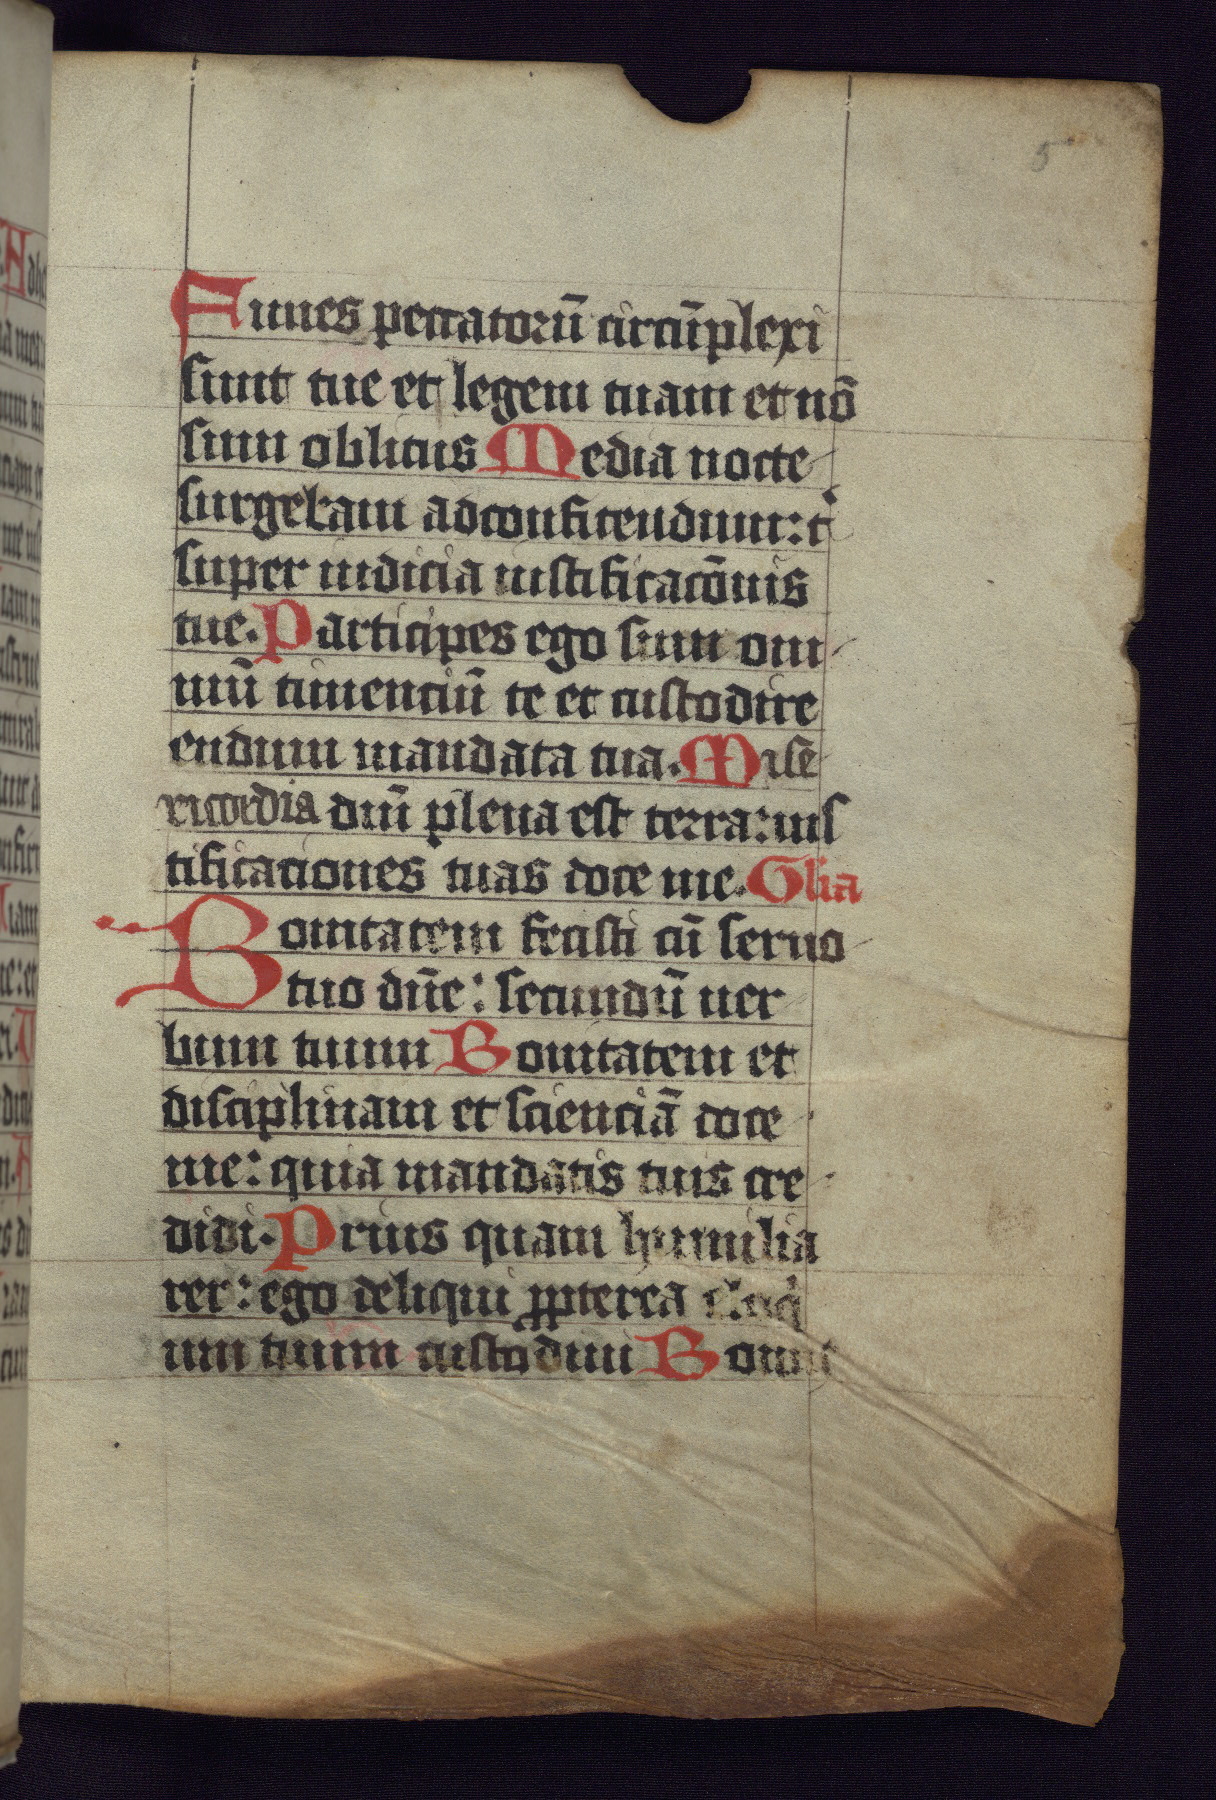 5
Funes peccatorū circūplexi
sunt tue et legem tuam et nō
sum oblitus Media nocte
surgebam adconfitendum: t
super iudicia iustificacōnis
tue. Particips ego sum om
niū timenciū te et custodire
endum mandata tua. Mise
ricordia dnī plena est terra: ius
tificationes tuas doce me. Glia
Bonitatem fecisti cū seruo
tuo dn̄e: secundū uer
bum tuum Bonitatem et
disciplinam et scienciā doce
me: quia mandatis tuis cre
didi. Prius quam humilia
rer: ego deliqui ꝓpterea
um tuum custodiui Bonus